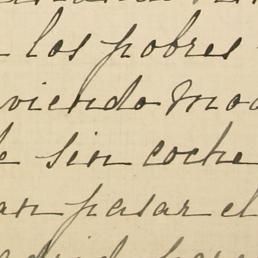 los pobres
viendo mod
sin coche
an pasar el